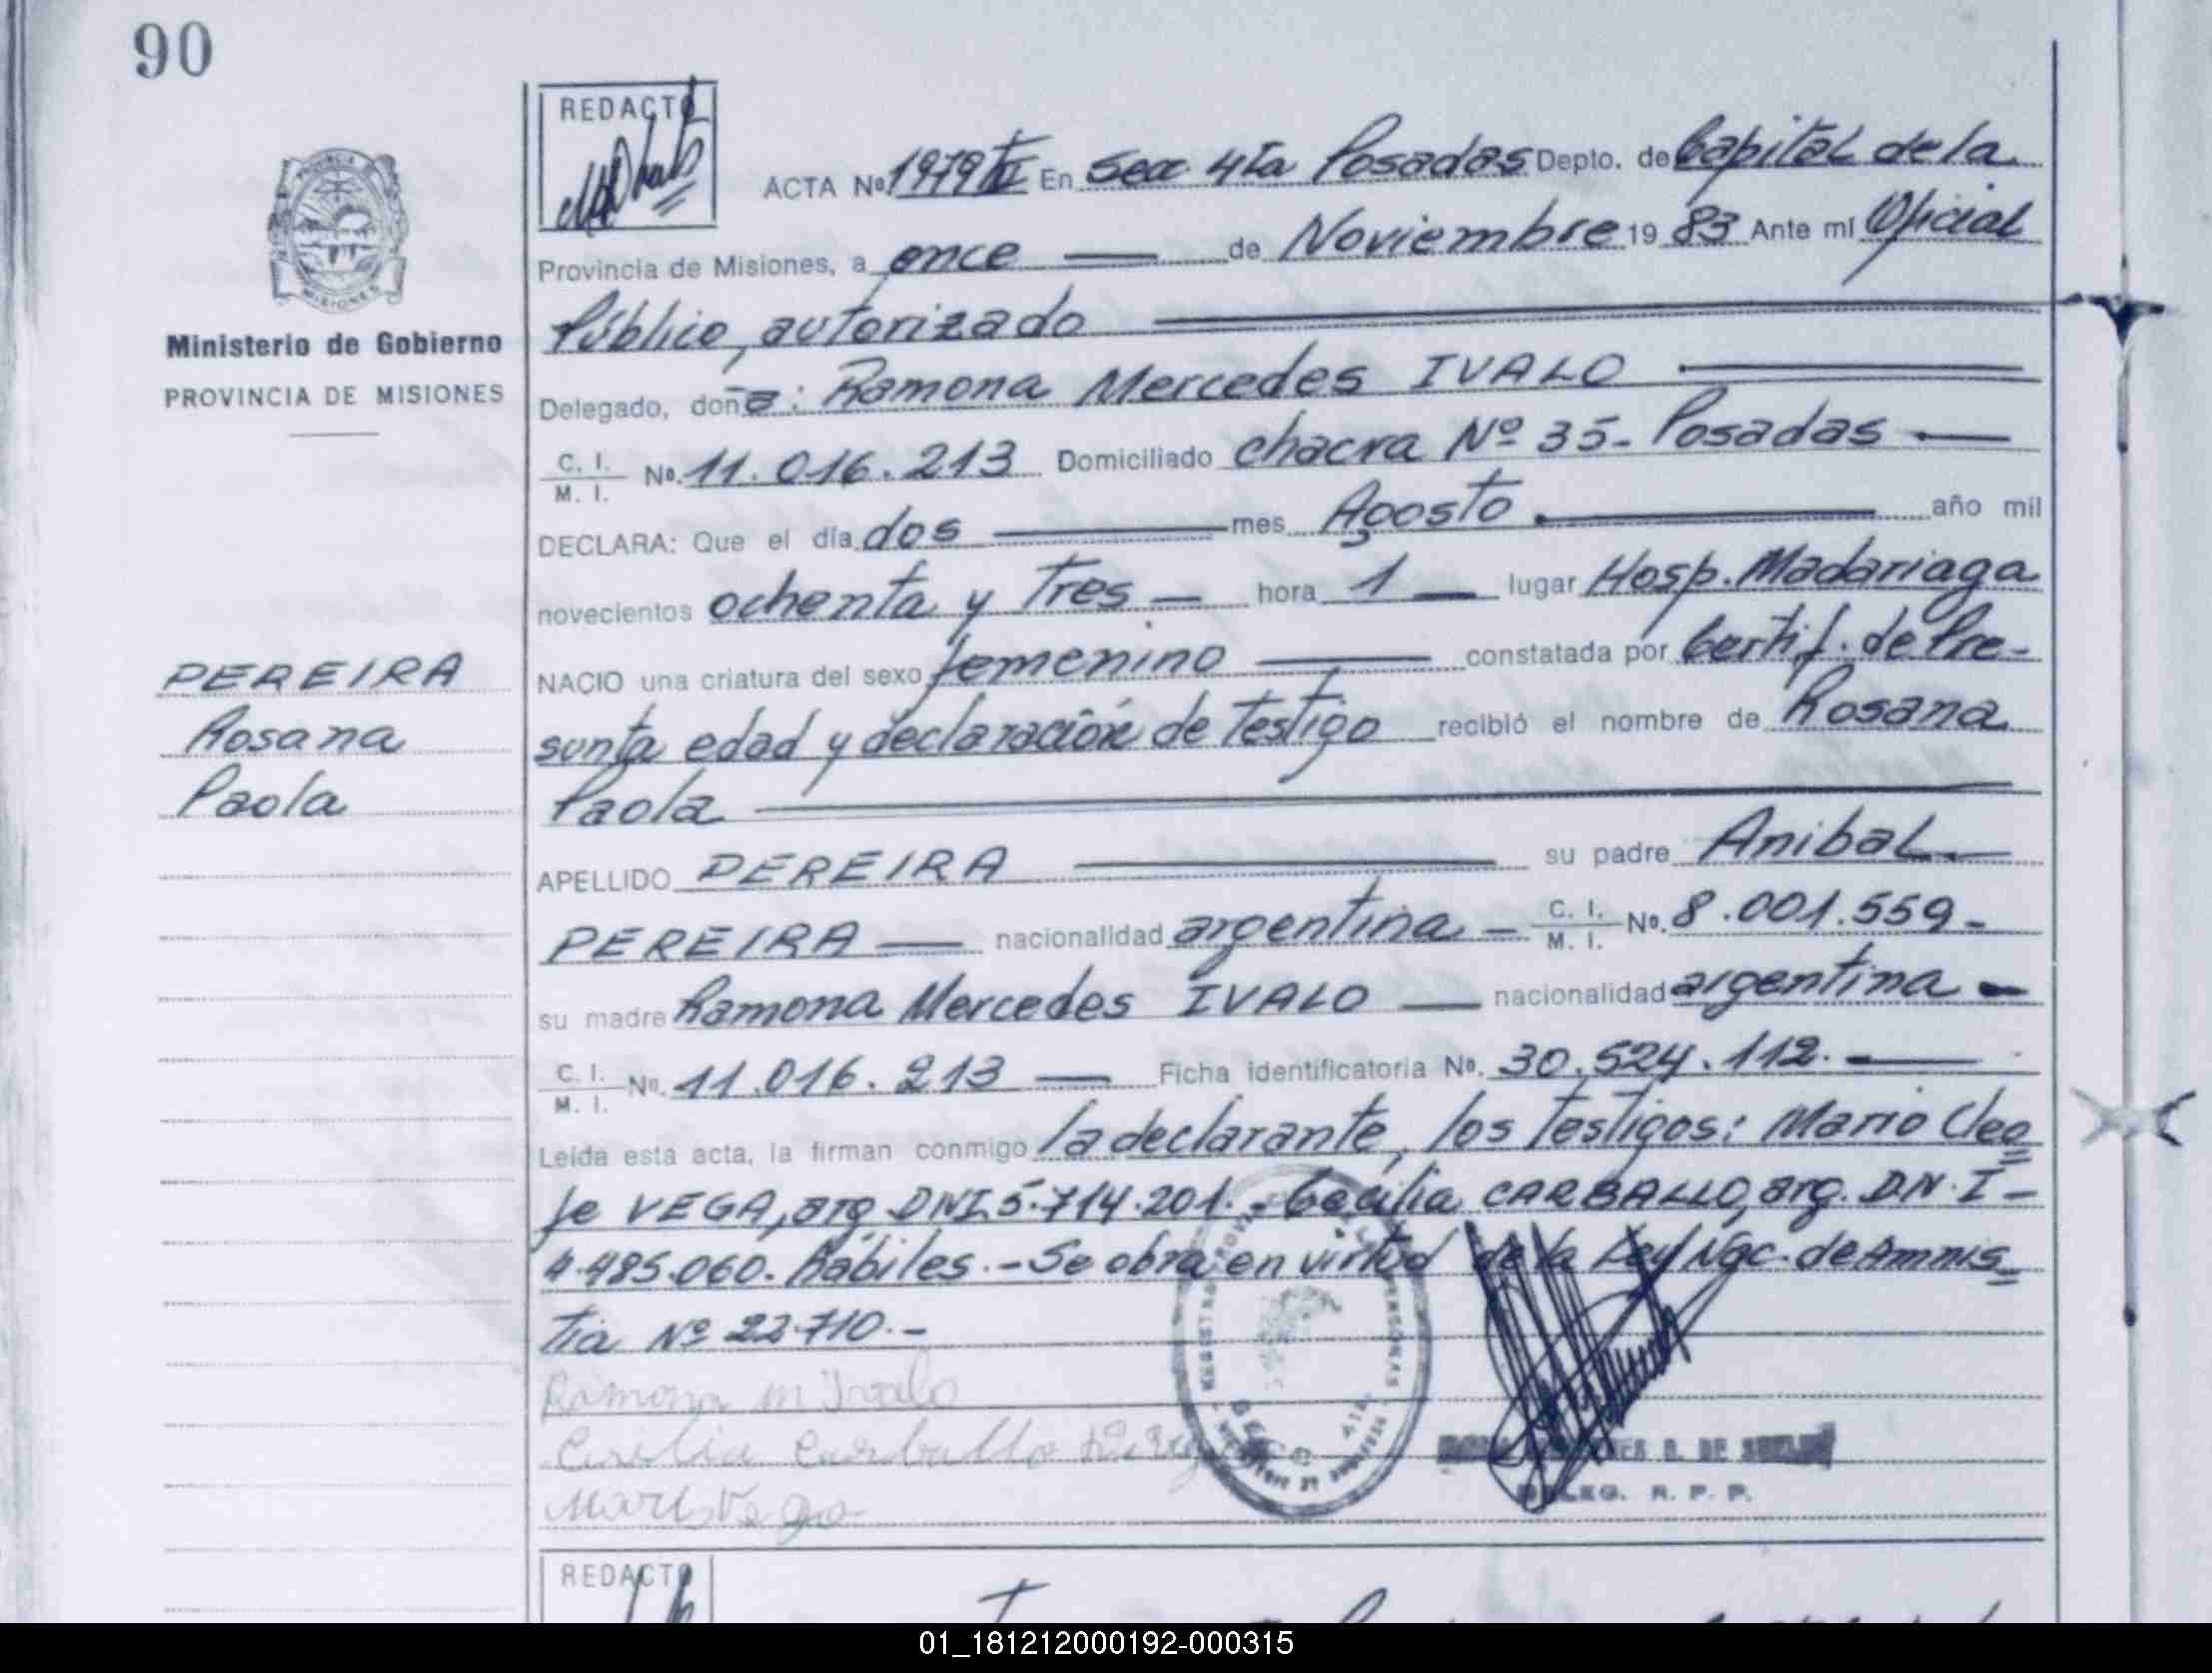 90
REDACTO
ACTA Nº 1979 En Secc 4ta Posadas Depto. de Capital de la
Provincia de Misiones, a once de Noviembre 1983 Ante mi Oficial
Público, autorizado
Ministerio de Gobierno
PROVINCIA DE MISIONES
Delegado, doña: Ramona Mercedes IVALO
C. I. M. I. Nº. 11.016.213 Domiciliado chacra Nº 35- Posadas
DECLARA: Que el día dos mes Agosto año mil
novecientos ochenta y Tres - hora 1 lugar Hosp. Madariaga
NACIO una criatura del sexo femenino constatada por Certif. de Pre-
sunta edad y declaración de Testigo recibió el nombre de Rosana
Paola
PEREIRA
Rosana
Paola
APELLIDO PEREIRA su padre Anibal
PEREIRA nacionalidad argentina - C. I. M. I. Nº. 8.001.559-
su madre Ramona Mercedes IVALO nacionalidad argentina -
C. I. M. I. Nº. 11.016.213 Ficha identificatoria Nº. 30.524.112.
Leída esta acta, la firman conmigo la declarante, los Testigos: Mario Cleo
fe VEGA, arg. DNI. 5.714.201.- Cecilia CARBALLO, arg. D.N.I-
4.485.060. hábiles.- Se obra en virtud de la Ley Nac. de Amnis
tía Nº 22.710.-
Ramona M Ivalo
Cecilia Carballo
Mario Vega
REGISTRO PROVINCIAL PERSONAS
DE
DELEG. R. P. P.
REDACTO
01_181212000192-000315